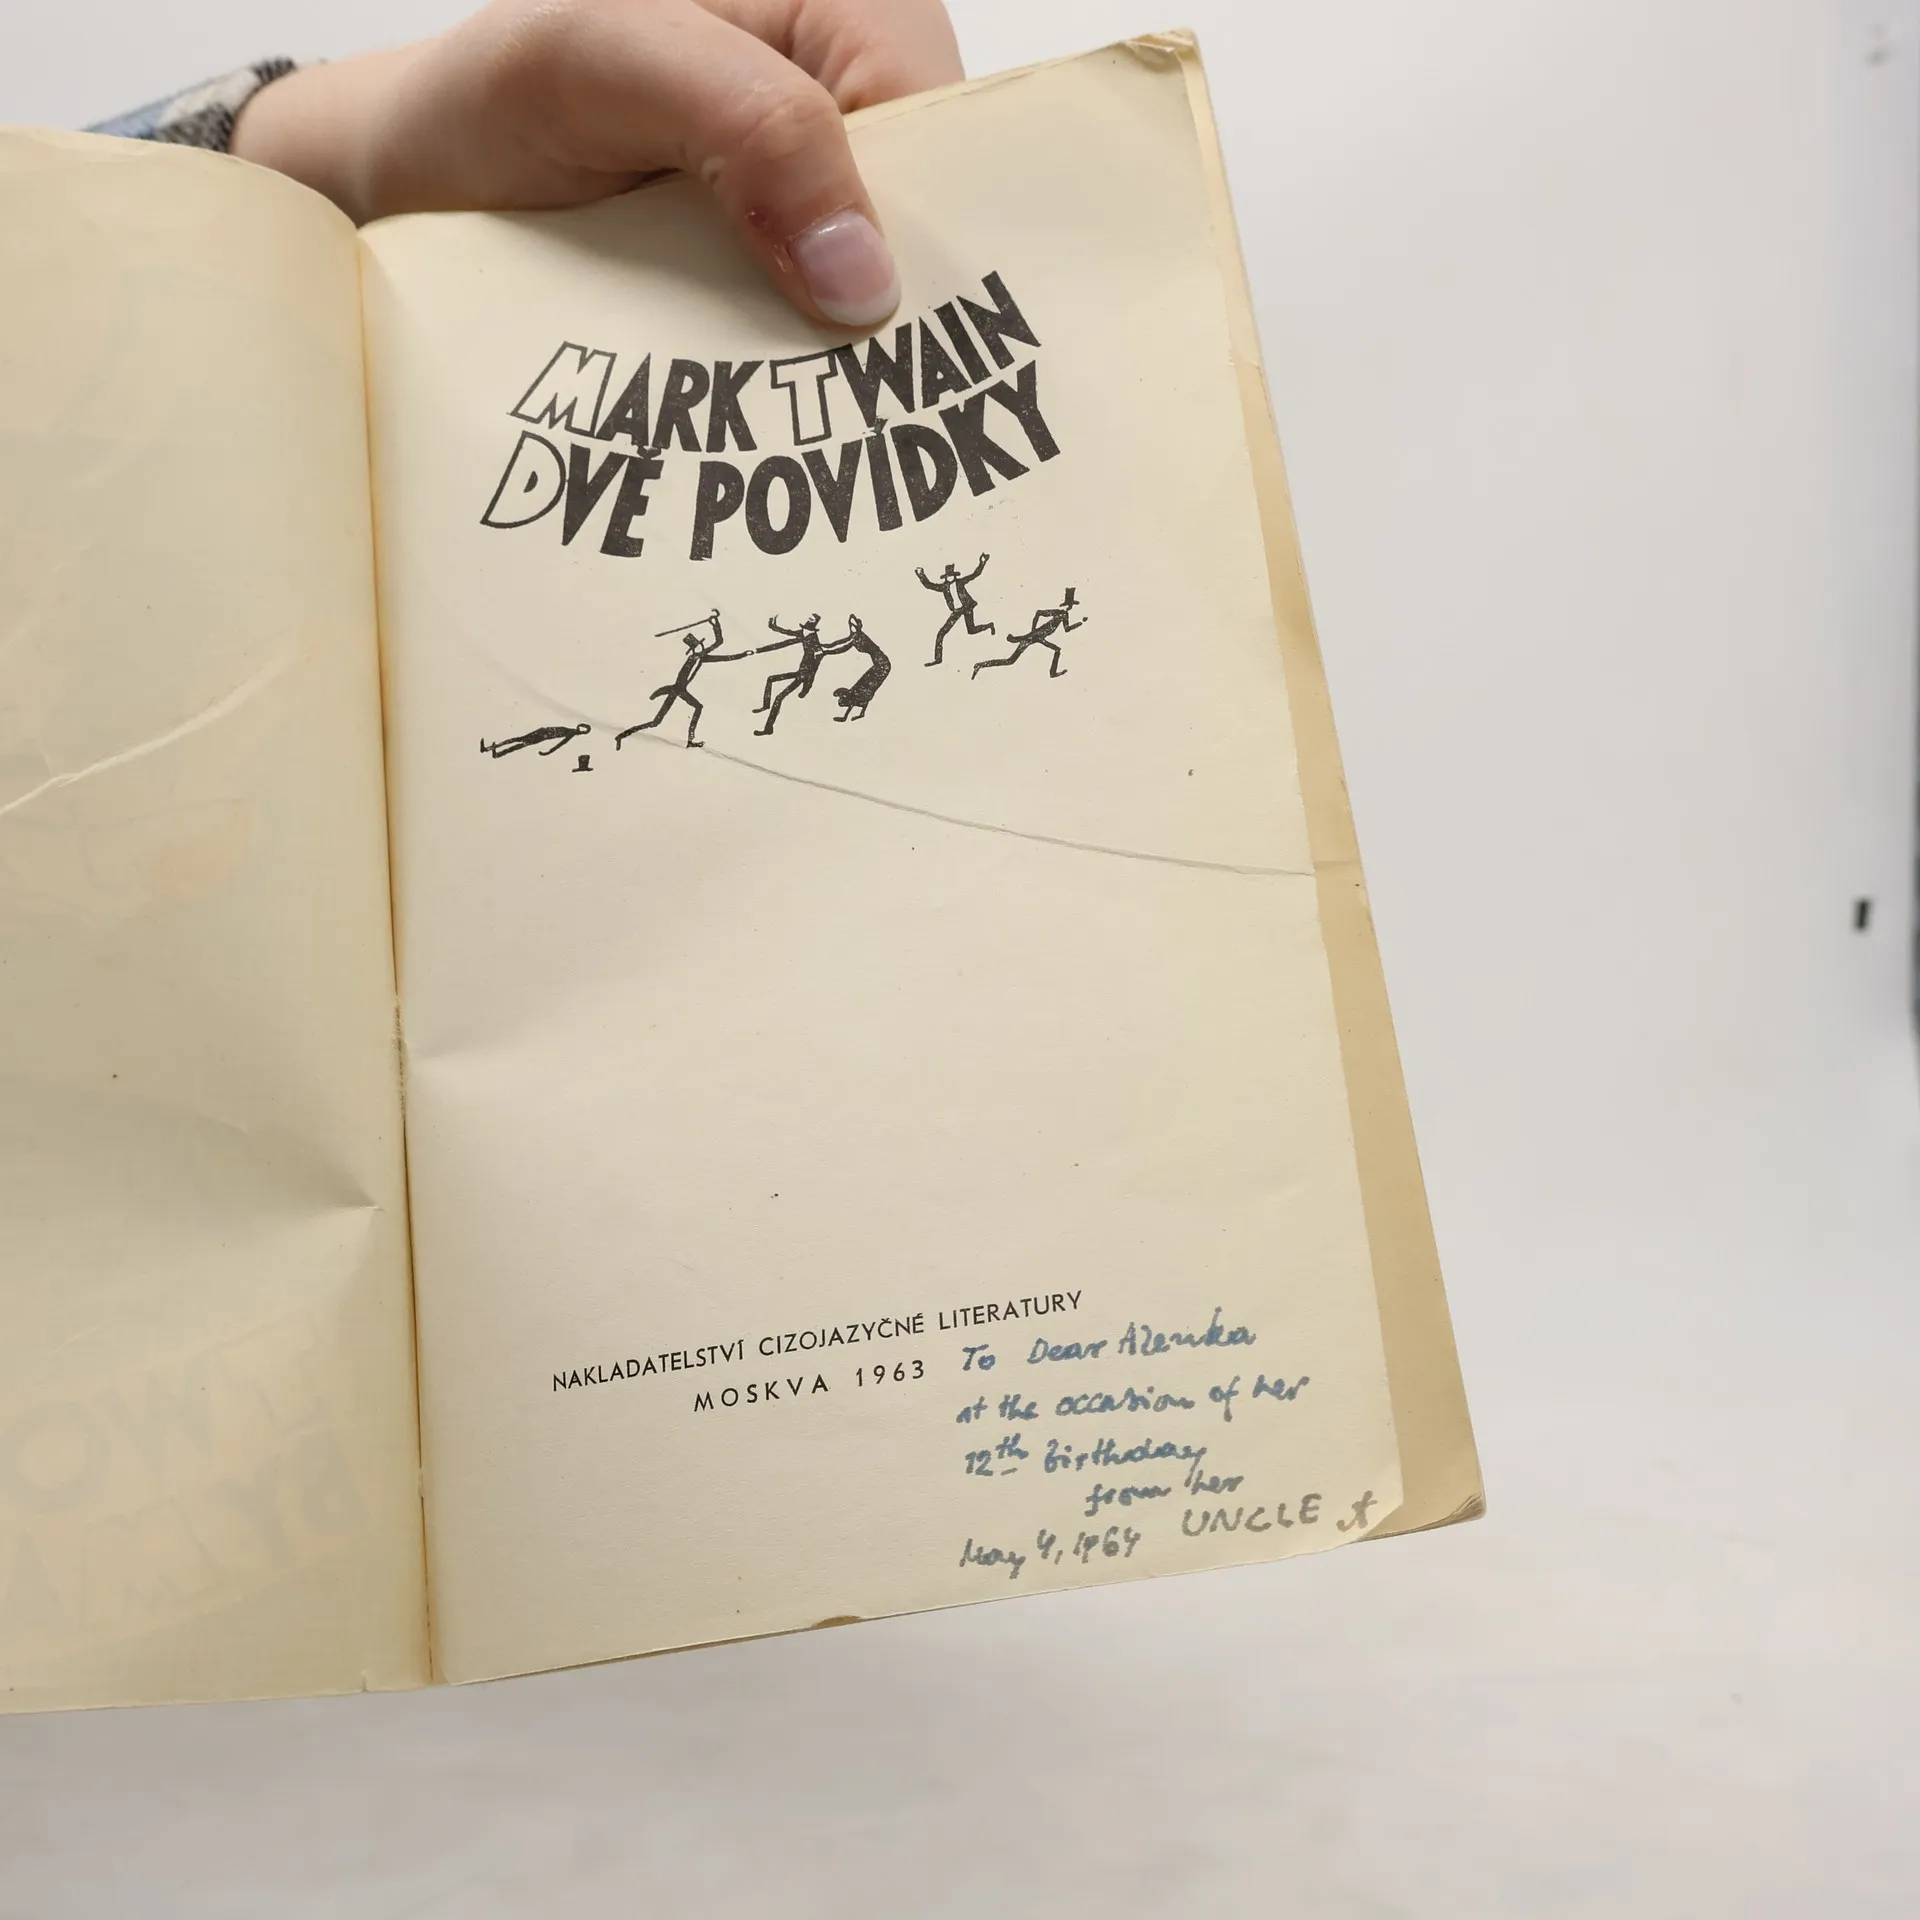 MARK TWAIN
DVĚ POVÍDKY
NAKLADATELSTVÍ CIZOJAZYČNÉ LITERATURY
MOSKVA 1963
To Dear Alenka
at the occasion of her
12th Birthday
from her
UNCLE
May 4, 1964